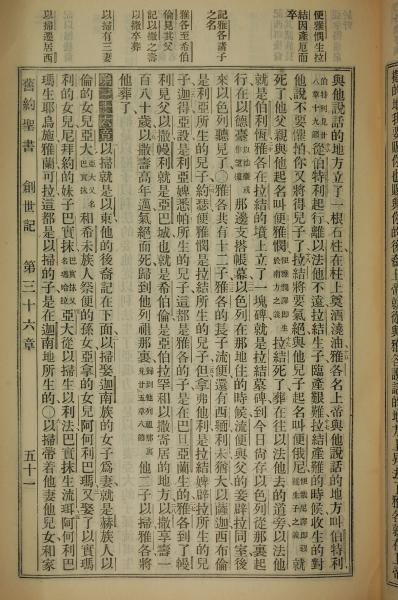 便雅憫生拉
結因產厄而
卒
記雅各諸子
之名
雅各至希伯
倫見其父
記以撒之壽
以撒卒葬
以掃有三妻
以掃遷居西
與他說話的地方立了一根石柱在柱上奠酒澆油雅各名上帝與他說話的地方叫伯特利
從伯特利起行離以法他不遠拉結生子臨產艱難拉結產難的時候收生的對
他說不要懼怕你又將得兒子了拉結將要氣絕與他兒子起名叫便俄尼
就
死了他父親與他起名叫便雅憫
拉結死了葬在往以法他去的道旁以法他
就是伯利恆雅各在拉結的墳上立了一塊碑就是拉結墓碑到今日尚存以色列從那裏起
行在以德臺
那邊支搭帳幕以色列在那地住的時候流便與父的妾辟拉同室後
來以色列聽見了〇雅各共有十二子雅各的長子流便還有西緬利未猶大以薩迦西布倫
是利亞所生的兒子約瑟便雅憫是拉結所生的兒子但拿弗他利是拉結婢辟拉所生的兒
子迦得亞設是利亞婢悉帕所生的兒子這都是雅各的子是在巴旦亞蘭生的雅各到了幔
利見父以撒幔利就是亞巴城也就是希伯倫是亞伯拉罕和以撒寄居的地方以撒享壽一
百八十歲以撒壽高年邁氣絕而死歸到他列祖那裏
他二子以掃雅各將
他葬了
第三十六章 以掃就是以東他的後裔記在下面以掃娶迦南族的女子為妻就是赫族人以
倫的女兒亞大
和希未族人祭便的孫女亞拿的女兒阿何利巴瑪又娶了以實瑪
利的女兒尼拜約的妹子巴實抹
亞大從以掃生以利法巴實抹生流珥阿何利巴
瑪生耶烏施雅蘭可拉這都是以掃的子是在迦南地所生的〇以掃帶着他妻他兒女和家
舊約聖書 創世記 第三十六章 五十一